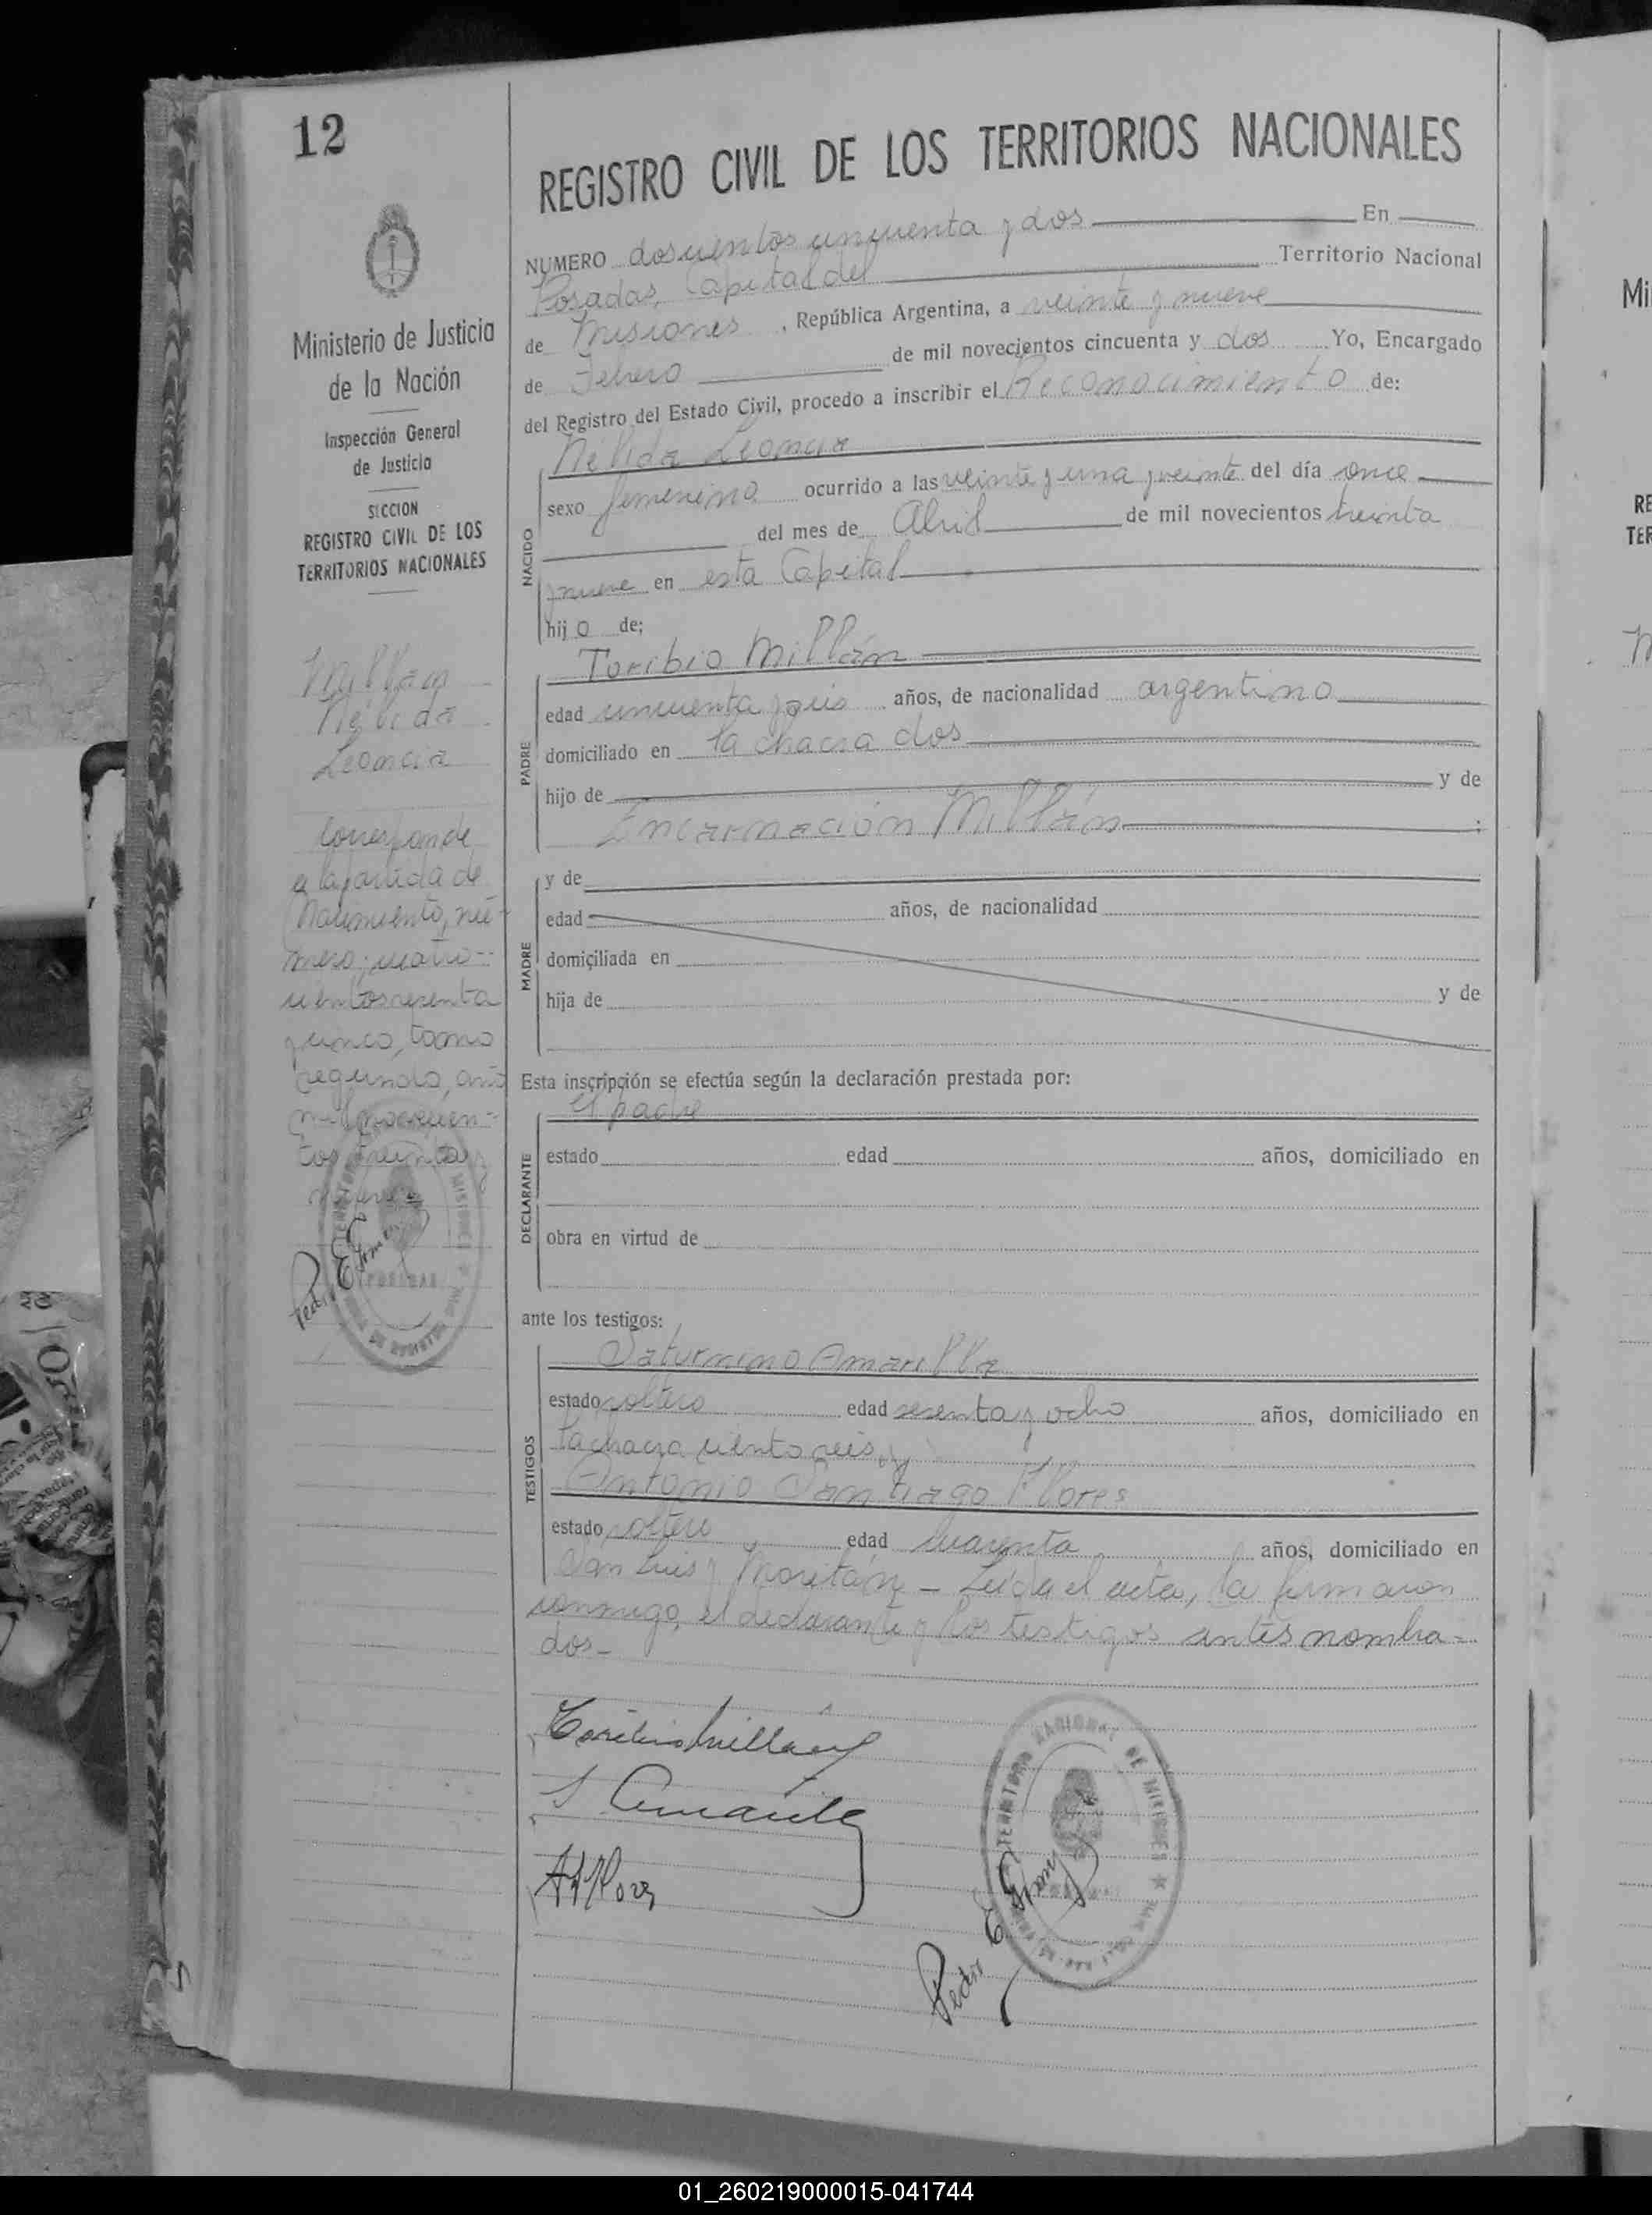 12
Ministerio de Justicia
de la Nación
Inspección General
de Justicia
SECCION
REGISTRO CIVIL DE LOS
TERRITORIOS NACIONALES
Millan
Nélida
Leoncia
Corresponde
a la partida de
Nacimiento, nú-
mero; cuatro--
cientos
y cinco, tomo
segundo, año
mil novecien-
tos treinta y
nueve
REGISTRO CIVIL DE LOS TERRITORIOS NACIONALES
NUMERO doscientos cincuenta y dos En
Posadas, Capital del Territorio Nacional
de Misiones, República Argentina, a veinte y nueve
de Febrero de mil novecientos cincuenta y dos Yo, Encargado
del Registro del Estado Civil, procedo a inscribir el Reconocimiento de:
Nélida Leoncia
NACIDO
sexo femenino ocurrido a las veinte y una y veinte del día once
del mes de Abril de mil novecientos treinta
y nueve en esta Capital
hijo de;
Toribio Millán
PADRE
edad cincuenta y seis años, de nacionalidad argentino
domiciliado en la chacra dos
hijo de y de
Encarnación Millán ;
MADRE
y de
edad años, de nacionalidad
domiciliada en
hija de y de
Esta inscripción se efectúa según la declaración prestada por:
el padre
DECLARANTE
estado edad años, domiciliado en
obra en virtud de
ante los testigos:
Saturnino Amarilla
TESTIGOS
estado soltero edad sesenta y ocho años, domiciliado en
la chacra ciento seis, y
Antonio Santiago Flores
estado soltero edad cuarenta años, domiciliado en
San Luis y Moritán - Leída el acta, la firmaron
conmigo, el declarante y los testigos antes nombra-
dos-
Toribio Millán
S Amarilla
A S Flores
TERRITORIO NACIONAL DE MISIONES
Pedro E.
01_260219000015-041744